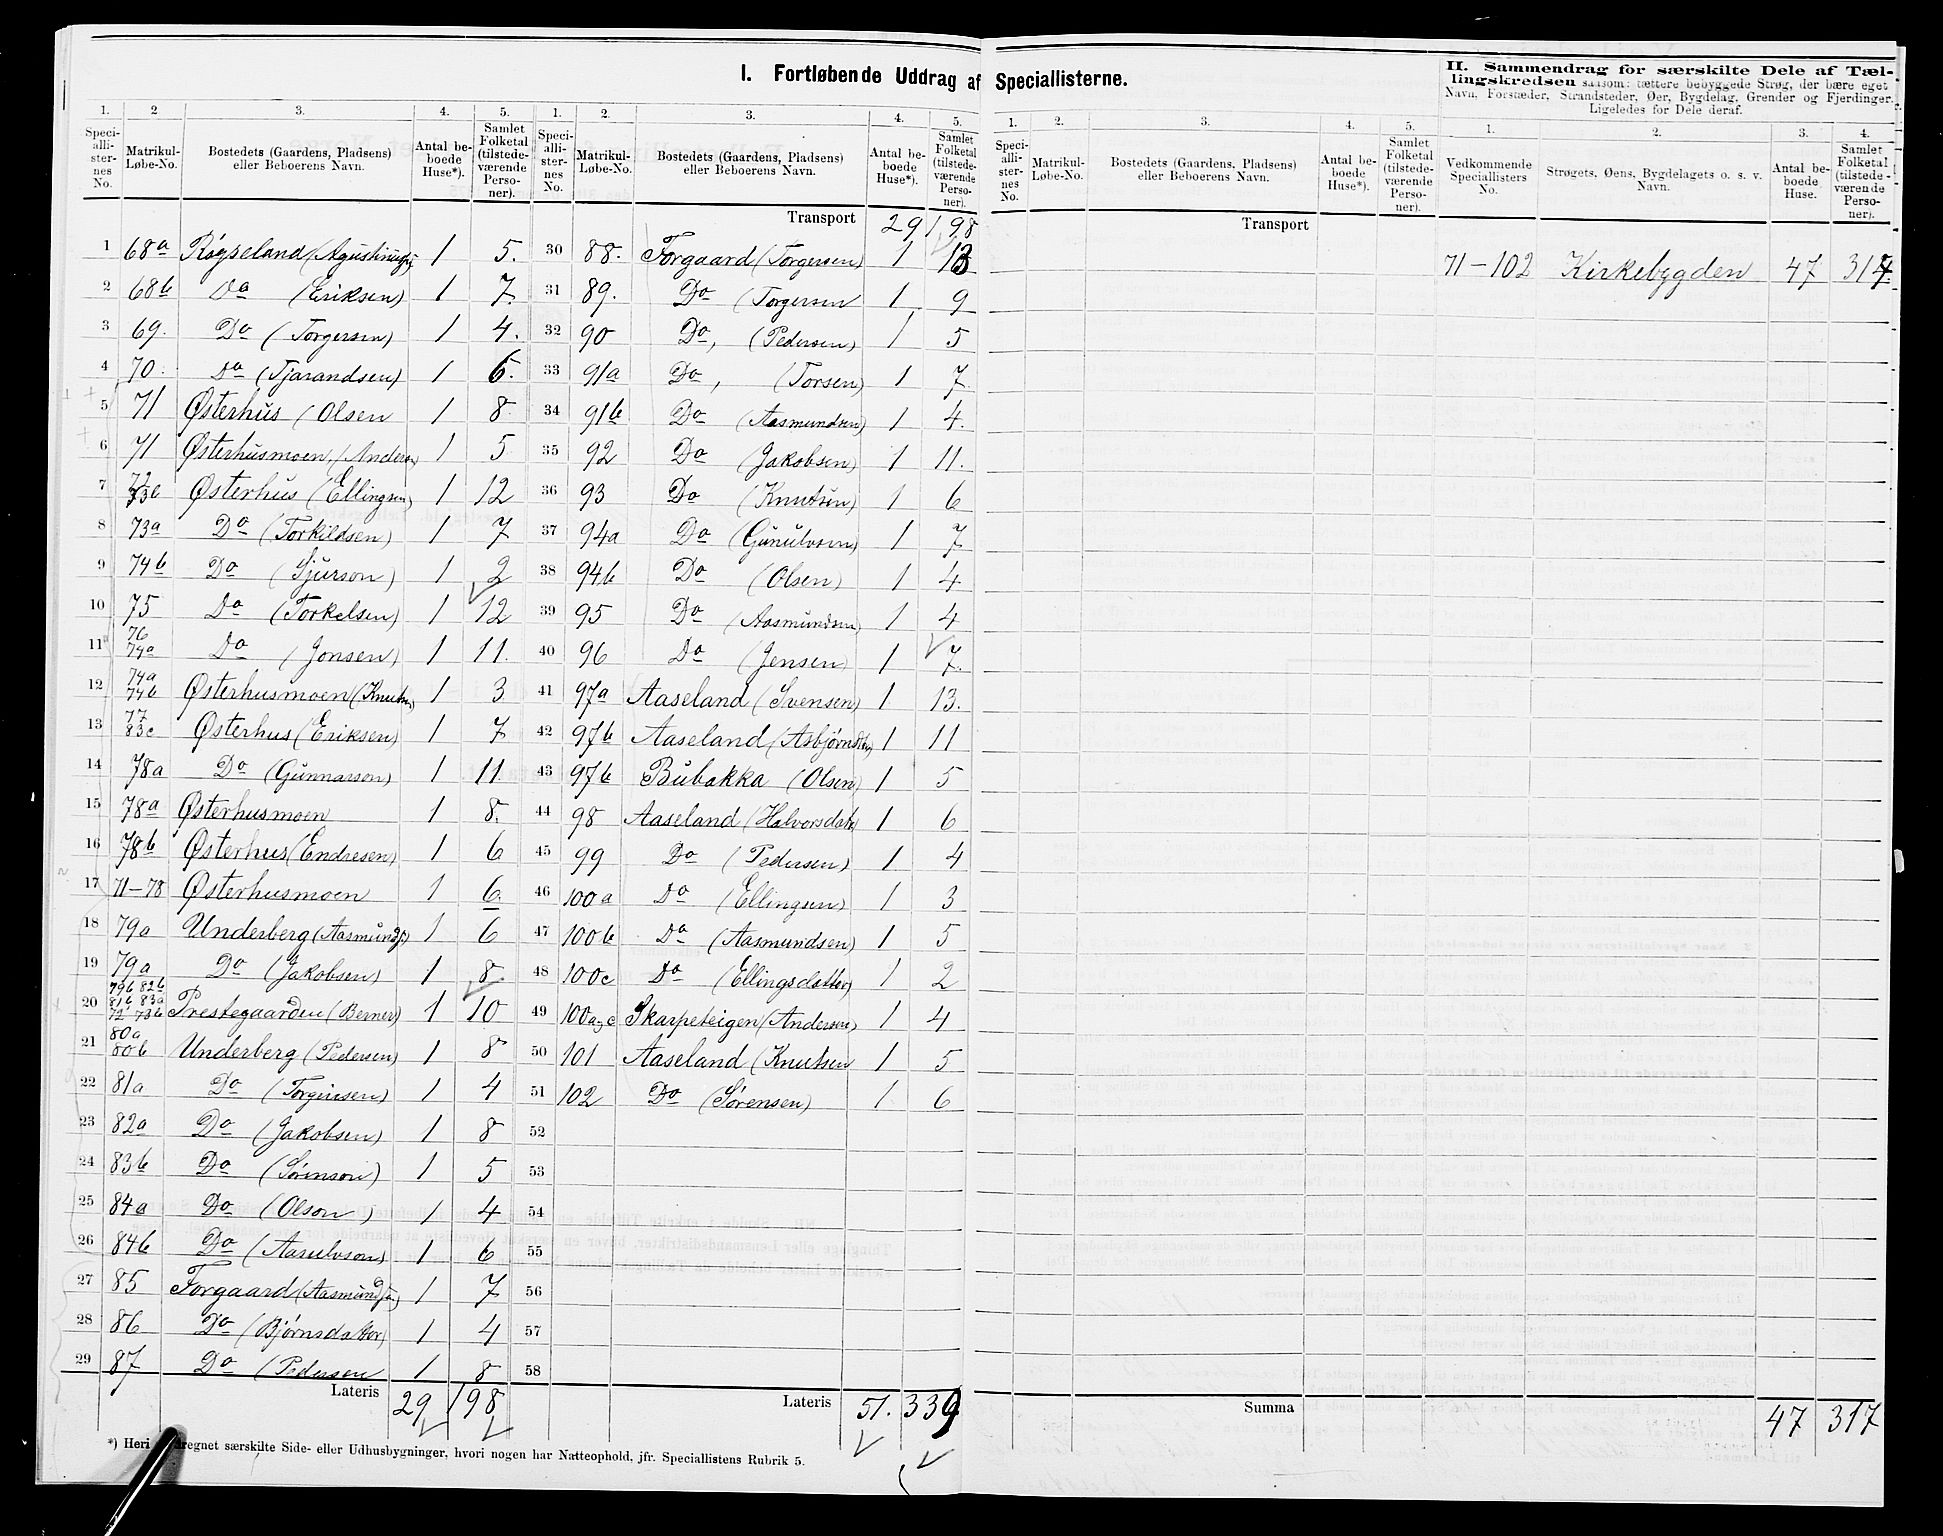 I. Fortløbende Uddrag af Speciallisterne.
II. Sammendrag for særskilte Dele af Tæl-
lingskredsen saasom: tættere bebyggede Strøg, der bære eget
Navn, Forstæder, Strandsteder, Øer, Bygdelag, Grender og Fjerdinger.
Ligeledes for Dele deraf.
1. 2 3. 4. 5. 1. 2. 3. 4. 5.
Speci-alli-ster-nes No. Matrikul-Løbe-No. Bostedets (Gaardens, Pladsens) eller Beboerens Navn. Antal be-boede Huse*). Samlet Folketal (tilstede-værende Perso-ner). Speci-alli-ster-nes No. Matrikul-Løbe-No. Bostedets (Gaardens, Pladsens) eller Beboerens Navn. Antal be-boede Huse*). Samlet Folketal (tilstede-værende Perso-ner).
1 68a Røgseland 1 5.
2 68b Do (Eriksen) 1 7.
3 69. Do (Torgersen) 1 4.
4 70. Do (Tjarandsen) 1 6.
5 71 Østerhus (Olsen 1 8
6 71 Østerhusmoen (Andersen) 1 5
7 72 73b Østerhus (Ellingsen) 1 12
8 73a Do (Torkildsen) 1 7
9 74b Do (Sjurson) 1 2
10 75 Do (Torkelsen) 1 12
11 76 Do (Jonsen) 1 11.
12 74a 74b Østerhusmoen (Knutsen) 1 3
13 77 83c Østerhus (Eriksen) 1 7
14 78a Do (Gunnarson) 1 11
15 78a Østerhusmoen 1 8.
16 78b Østerhus (Endresen) 1 6
17 71-78 Østerhusmoen 1 6.
18 79a Underberg 1 6
19 79a Do (Jakobsen) 1 8
20 79b 82b 81b 83a 72 73b Prestegaarden (Berner) 1 10
21 80a 80b Underberg (Pedersen) 1 8
22 81a Do (Torginsen) 1 4
23 82a Do (Jakobsen) 1 8
24 83b Do (Sørenson) 1 5
25 84a Do (Olson) 1 4
26 84b Do (Aasulvson) 1 6
27 85 Forgaard 1 7
28 86 Do (Bjørnsdatter) 1 4
29 87 Do (Pedersen 1 8
Lateris 29 198
Transport 29 198
30 88. Forgaard (Torgersen) 1 13
31 89. Do (Torgersen 1 9
32 90 Do, (Pedersen) 1 5
33 91a Do, (Torsen) 1 7
34 91b Do (Aasmundsen) 1 4.
35 92 Do (Jakobsen) 1 11.
36 93 Do (Knutsen) 1 6
37 94a Do (Gunulvsen) 1 7
38 94b Do (Olsen) 1 4
39 95 Do (Aasmundsen) 1 4
40 96 Do (Jensen) 1 7.
41 97a Aaseland (Svensen) 1 13.
42 97b Aaseland 1 11
43 97b Bubakka (Olsen) 1 5
44 98 Aaseland (Halvorsdatter) 1 6
45 99 Do (Pedersen) 1 4
46 100a Do (Ellingsen) 1 3
47 100b Do (Aasmundsen) 1 5
48 100c Do (Ellingsdatter) 1 2
49 100a,c Skarpeteigen (Andersen) 1 4
50 101 Aaseland (Knutsen 1 5
51 102 Do (Sørensen) 1 6
52
53
54
55
56
57
58
Lateris 51. 339
*) Heri regnet særskilte Side- eller Udhusbygninger, hvori nogen har Natteophold, jfr. Speciallistens Rubrik 5.
1. 2. 3. 4. 5.
Speci-alli-ster-nes No. Matrikul-Løbe-No. Bostedets (Gaardens, Pladsens) eller Beboerens Navn. Antal be-boede Huse*). Samlet Folketal (tilstede-værende Perso-ner).
Transport
Summa
1. 2. 3. 4.
Vedkommende Speciallisters No. Strøgets, Øens, Bygdelagets o. s. v. Navn. Antal be-boede Huse. Samlet Folketal (tilstede-værende Perso-ner).
71-102 Kirkebygden 47 317
47 317